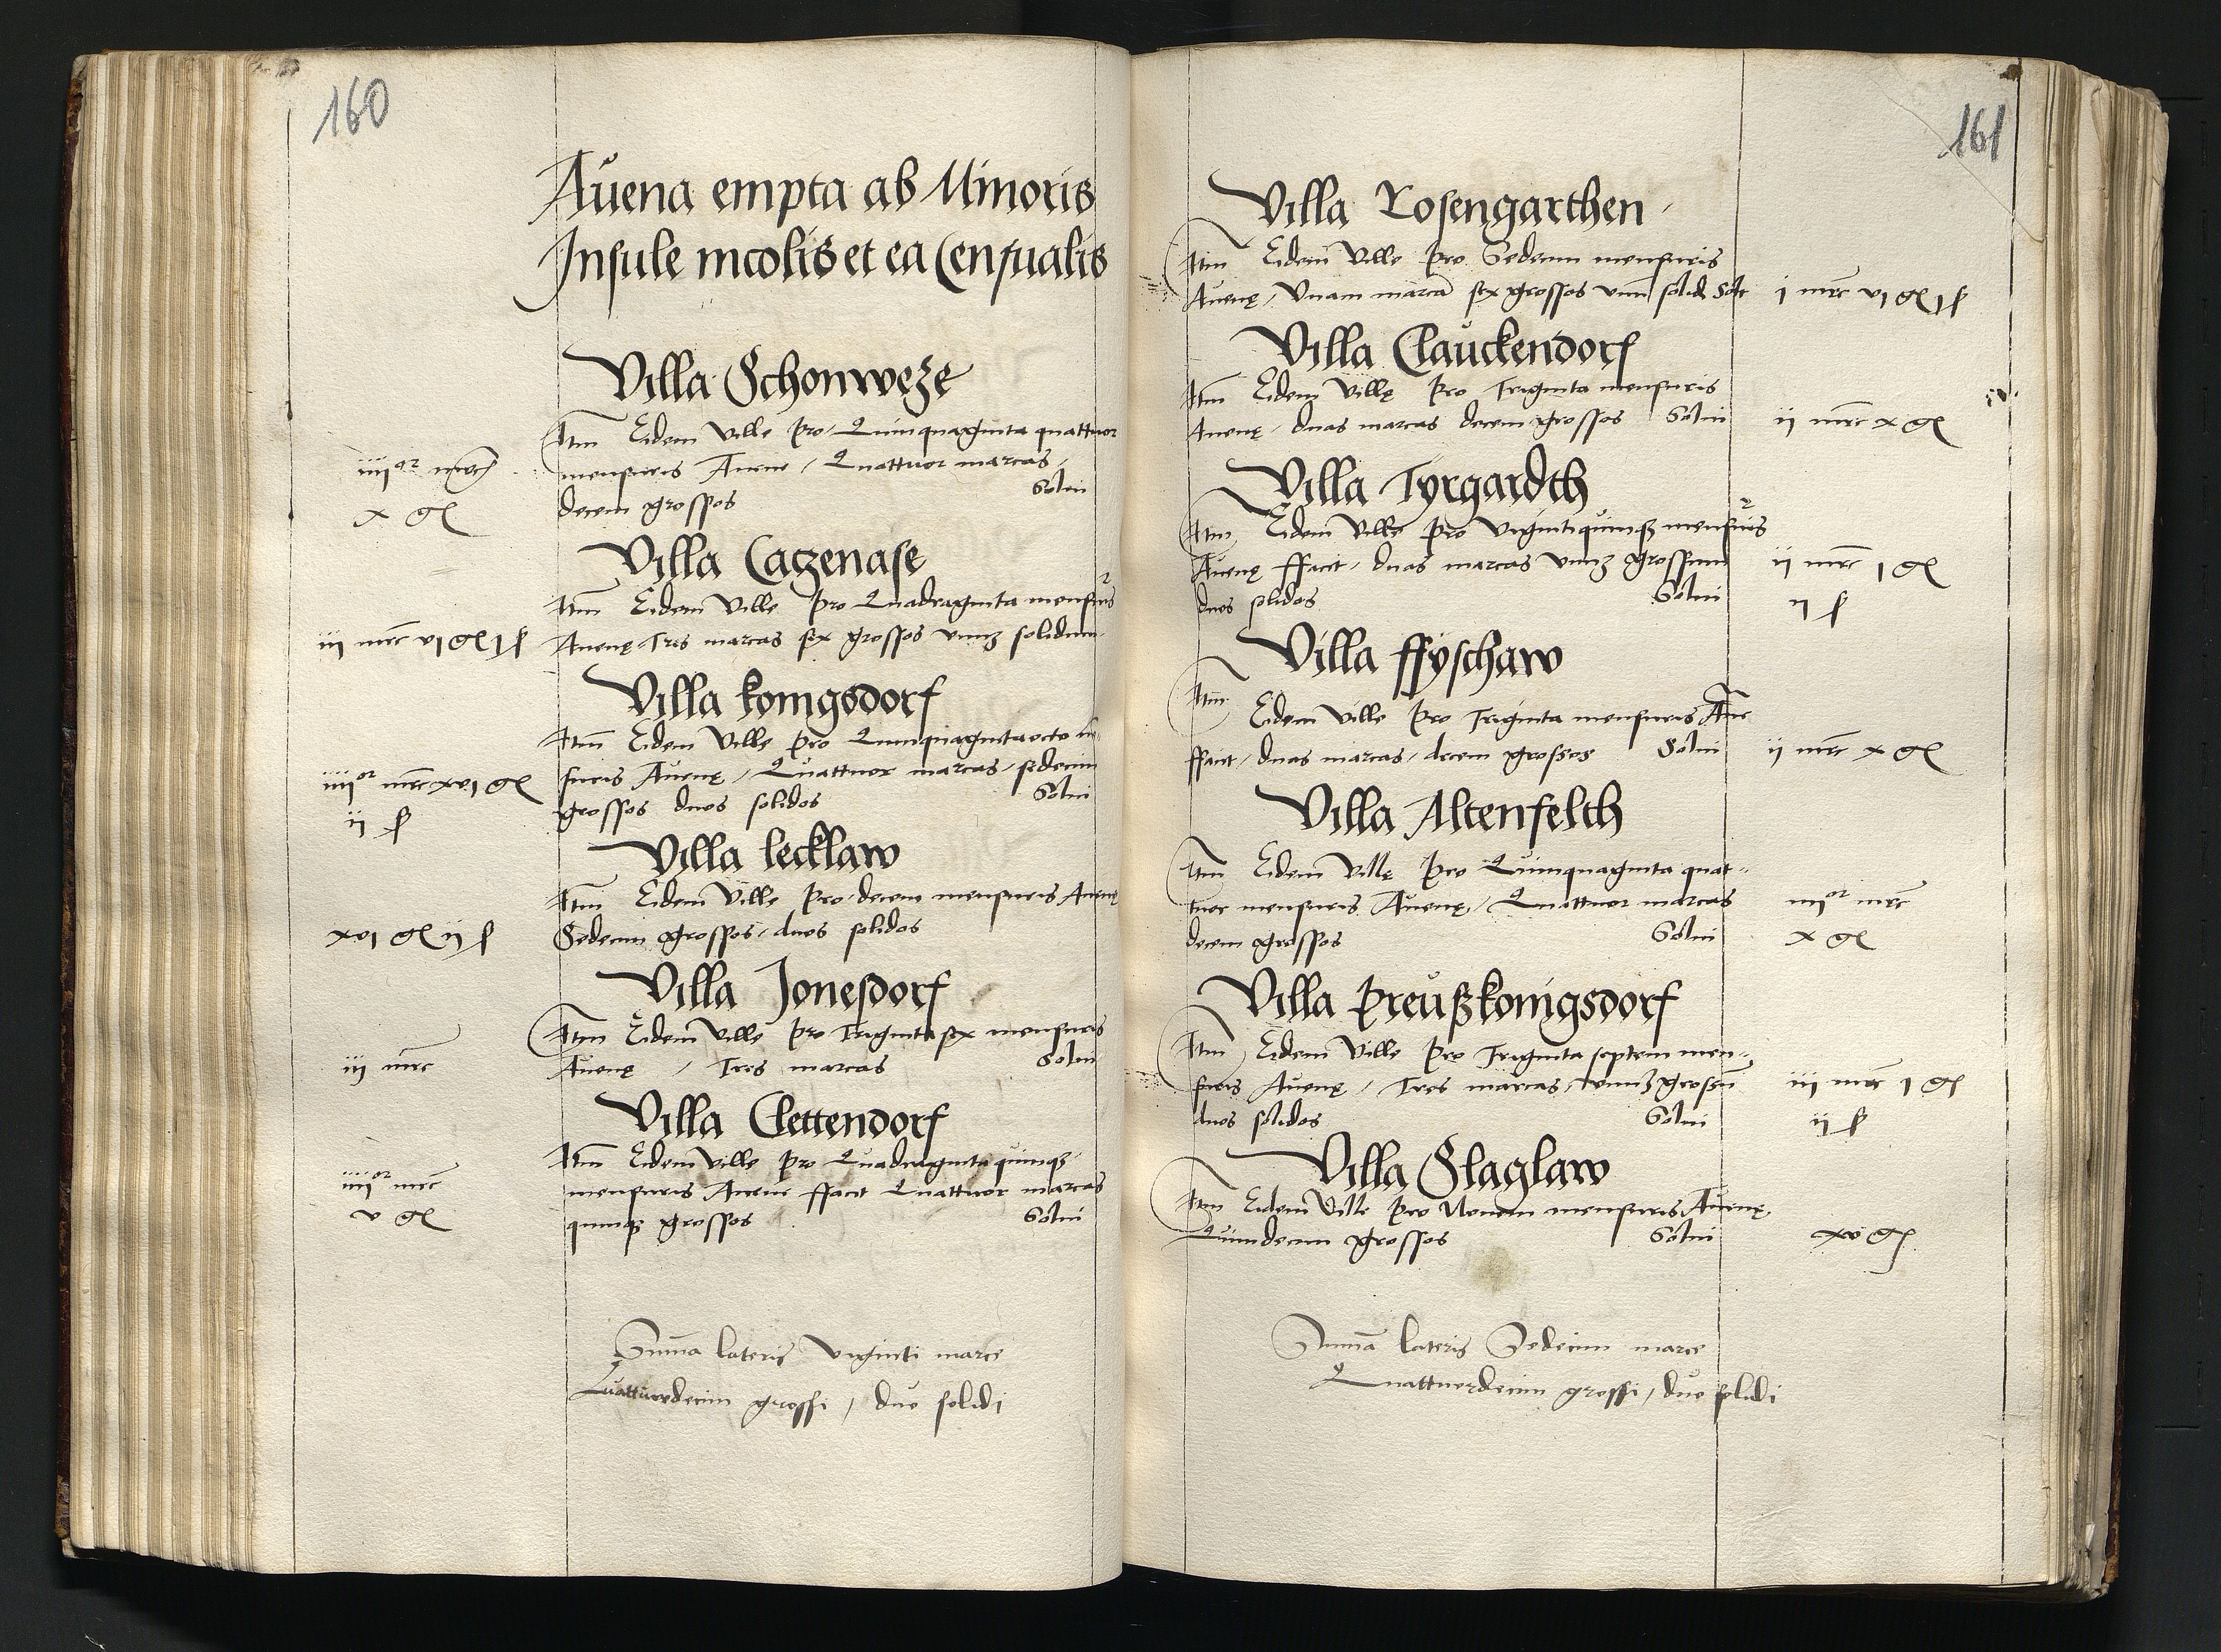 160
Auena empta ab Minoris
Insule incolis et ea Censualis
Villa Schonweze
Itm Eidem Ville pro Quinquaginta quattuor
mensuris Auene / Quattuor marcas /
iiij or mrc
decem grossos Solui
x gl
Villa Cagzenase
Itm Eidem Ville pro Quadraginta mensuris
Auenę Tres marcas sex grossos vnuʒ solidum
iij mrc vj gl j ß
Villa konigsdorf
Itm Eidem Ville pro Quinquaginta octo
suris Auenę / Quattuor marcas / sedecim
iiij or mrc xvj gl
grossos duos solidos Solui
ij ß
Villa lecklaw
Itm Eidem Ville pro decem mensuris Auenę
Sedecim grossos / duos solidos
xvj gl ij ß
Villa Jonesdorf
Itm Eidem Ville pro Triginta sex mensuris
Auenę / Tres marcas Solui
iij mrc
Villa Clettendorf
Itm Eidem Ville pro Quadraginta quinqʒ
mensuris Auene ffacit Quattuor marcas
iiij or mrc
quinqʒ grossos Solui
v gl
Summa lateris viginti marce
Quattuordecim grossi / duo solidi
161
Villa Rosengarthen
Itm Eidem Ville pro Sedecim mensuris
Auenę / Vnam marcā sex grossos vnū solid Solt
j mrc vj gl j ß
Villa Clauckendorf
Itm Eidem Villę pro Triginta mensuris
Auenę / duas marcas decem grossos Solui
ij mrc x gl
Villa Tyrgardth
Itm Eidem Ville pro Viginti quinqʒ mensuris
Auenę ffacit / duas marcas vnuʒ grossum
ij mrc j gl
duos solidos Solui
ij ß
Villa ffyschaw
Itm Eidem Ville pro Triginta mensuris Aue
ffacit / duas marcas / decem grossos Solui
ij mrc x gl
Villa Altenfelth
Itm Eidem Villę pro Quinquaginta quat-
tuor mensuris Auenę / Quattuor marcas
iiij or mrc
decem grossos Solui
x gl
Villa Preußkonigsdorf
Itm Eidem Ville pro Triginta septem men-
suris Auenę / Tres marcas / vnuʒ grossū
iij mrc j gl
duos solidos Solui
ij ß
Villa Slaglaw
Itm Eidem Ville pro Nouem mensuris Auenę
Quindecim grossos Solui
xv gl
Summa lateris Sedecim marce
Quattuordecim grossi / duo solidi